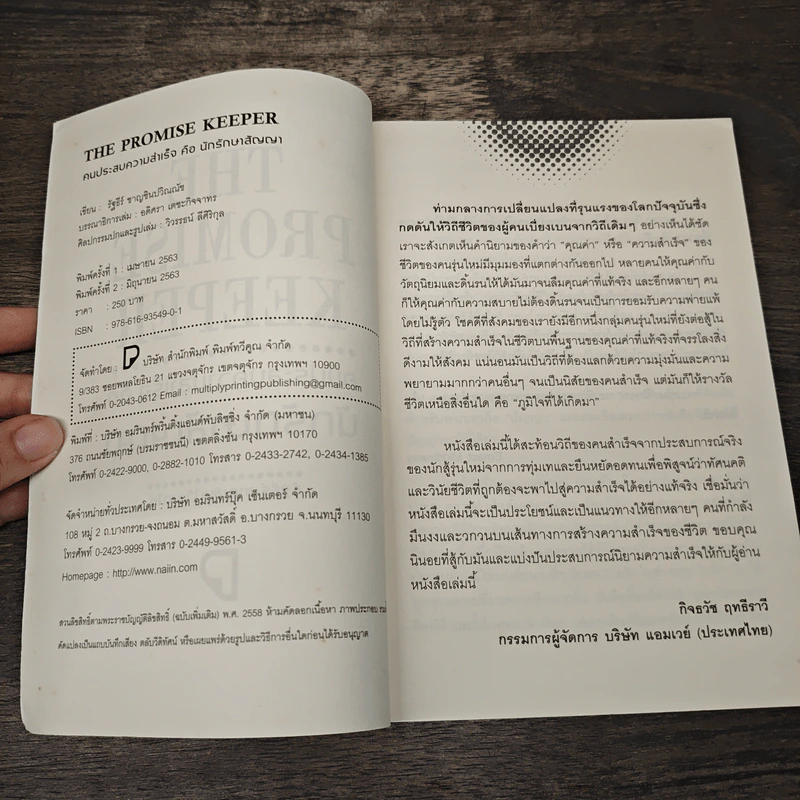 THE PROMISE KEEPER
คนประสบความสำเร็จ คือ นักรักษาสัญญา
เขียน : รัฐธีร์ ชาญชินปวิณณัช
บรรณาธิการเล่ม : อติศรา เตชะกิจจาทร
ศิลปกรรมปกและรูปเล่ม : วิวรรธน์ ลีศิริกุล
พิมพ์ครั้งที่ 1 : เมษายน 2563
พิมพ์ครั้งที่ 2 : มิถุนายน 2563
ราคา : 250 บาท
ISBN : 978-616-93549-0-1
จัดทำโดย : บริษัท สำนักพิมพ์ พิมพ์ทวีคูณ จำกัด
9/383 ซอยพหลโยธิน 21 แขวงจตุจักร เขตจตุจักร กรุงเทพฯ 10900
โทรศัพท์ 0-2043-0612 Email : multiplyprintingpublishing@gmail.com
พิมพ์ที่ : บริษัท อมรินทร์พริ้นติ้งแอนด์พับลิชชิ่ง จำกัด (มหาชน)
376 ถนนชัยพฤกษ์ (บรมราชชนนี) เขตตลิ่งชัน กรุงเทพฯ 10170
โทรศัพท์ 0-2422-9000, 0-2882-1010 โทรสาร 0-2433-2742, 0-2434-1385
จัดจำหน่ายทั่วประเทศโดย : บริษัท อมรินทร์บุ๊ค เซ็นเตอร์ จำกัด
108 หมู่ 2 ถ.บางกรวย-จงถนอม ต.มหาสวัสดิ์ อ.บางกรวย จ.นนทบุรี 11130
โทรศัพท์ 0-2423-9999 โทรสาร 0-2449-9561-3
Homepage : http://www.naiin.com
สงวนลิขสิทธิ์ตามพระราชบัญญัติลิขสิทธิ์ (ฉบับเพิ่มเติม) พ.ศ. 2558 ห้ามคัดลอกเนื้อหา ภาพประกอบ
ดัดแปลงเป็นแถบบันทึกเสียง ตลับวีดิทัศน์ หรือเผยแพร่ด้วยรูปและวิธีการอื่นใดก่อนได้รับอนุญาต
ท่ามกลางการเปลี่ยนแปลงที่รุนแรงของโลกปัจจุบันซึ่ง
กดดันให้วิถีชีวิตของผู้คนเบี่ยงเบนจากวิถีเดิมๆ อย่างเห็นได้ชัด
เราจะสังเกตเห็นค่านิยามของคำว่า “คุณค่า” หรือ “ความสำเร็จ” ของ
ชีวิตของคนรุ่นใหม่มีมุมมองที่แตกต่างกันออกไป หลายคนให้คุณค่ากับ
วัตถุนิยมและดิ้นรนให้ได้มันมาจนลืมคุณค่าที่แท้จริง และอีกหลายๆ คน
ก็ให้คุณค่ากับความสบายไม่ต้องดิ้นรนจนเป็นการยอมรับความพ่ายแพ้
โดยไม่รู้ตัว โชคดีที่สังคมของเรายังมีอีกหนึ่งกลุ่มคนรุ่นใหม่ที่ยังต่อสู้ใน
วิถีที่สร้างความสำเร็จในชีวิตบนพื้นฐานของคุณค่าที่แท้จริงที่จรรโลงสิ่ง
ดีงามให้สังคม แน่นอนมันเป็นวิถีที่ต้องแลกด้วยความมุ่งมั่นและความ
พยายามมากกว่าคนอื่นๆ จนเป็นนิสัยของคนสำเร็จ แต่มันก็ให้รางวัล
ชีวิตเหนือสิ่งอื่นใด คือ “ภูมิใจที่ได้เกิดมา”
หนังสือเล่มนี้ได้สะท้อนวิถีของคนสำเร็จจากประสบการณ์จริง
ของนักสู้รุ่นใหม่จากการทุ่มเทและยืนหยัดอดทนเพื่อพิสูจน์ว่าทัศนคติ
และวินัยชีวิตที่ถูกต้องจะพาไปสู่ความสำเร็จได้อย่างแท้จริง เชื่อมั่นว่า
หนังสือเล่มนี้จะเป็นประโยชน์และเป็นแนวทางให้อีกหลายๆ คนที่กำลัง
มึนงงและวกวนบนเส้นทางการสร้างความสำเร็จของชีวิต ขอบคุณ
นินอยที่สู้กับมันและแบ่งปันประสบการณ์นิยามความสำเร็จให้กับผู้อ่าน
หนังสือเล่มนี้
กิจธวัช ฤทธีราวี
กรรมการผู้จัดการ บริษัท แอมเวย์ (ประเทศไทย)